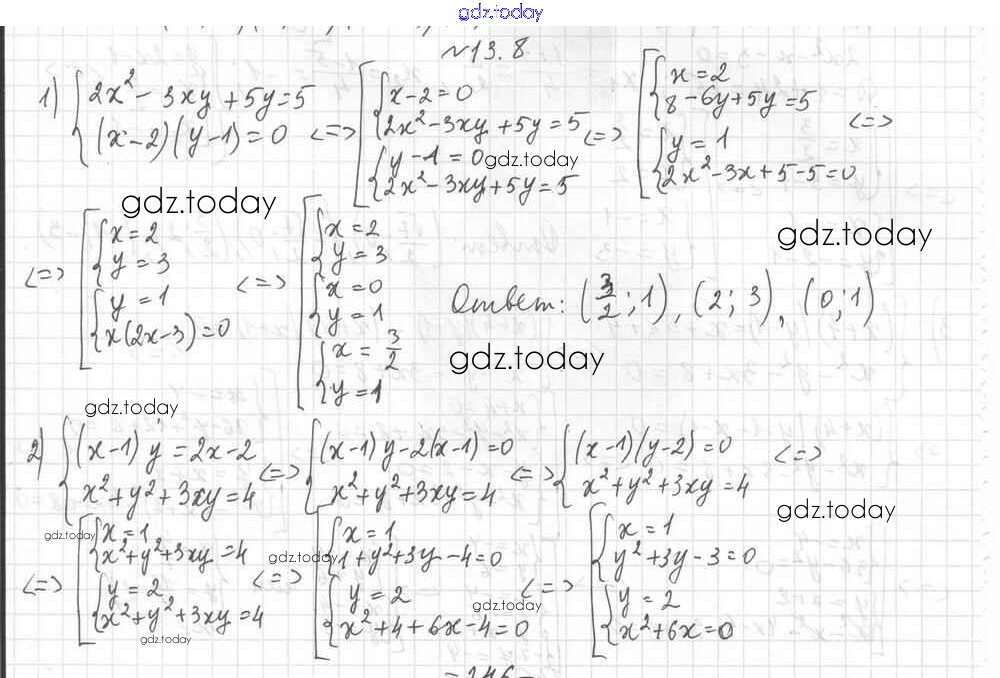 gdz.today
№13.8
1) { 2x² - 3xy + 5y = 5
(x-2)(y-1) = 0 <=> [ { x-2=0
2x²-3xy+5y=5
{ y-1=0
2x²-3xy+5y=5 <=> [ { x=2
8-6y+5y=5
{ y=1
2x²-3x+5-5=0 <=>
gdz.today
gdz.today
gdz.today
<=> [ { x=2
y=3
{ y=1
x(2x-3)=0 <=> [ { x=2
y=3
{ x=0
y=1
{ x=3/2
y=1
Ответ: (3/2; 1), (2; 3), (0; 1)
gdz.today
gdz.today
2) { (x-1)y=2x-2
x²+y²+3xy=4 <=> { (x-1)y-2(x-1)=0
x²+y²+3xy=4 <=> { (x-1)(y-2)=0
x²+y²+3xy=4 <=>
gdz.today
gdz.today
gdz.today
<=> [ { x=1
x²+y²+3xy=4
{ y=2
x²+y²+3xy=4 <=> [ { x=1
1+y²+3y-4=0
{ y=2
x²+4+6x-4=0 <=> [ { x=1
y²+3y-3=0
{ y=2
x²+6x=0
gdz.today
gdz.today